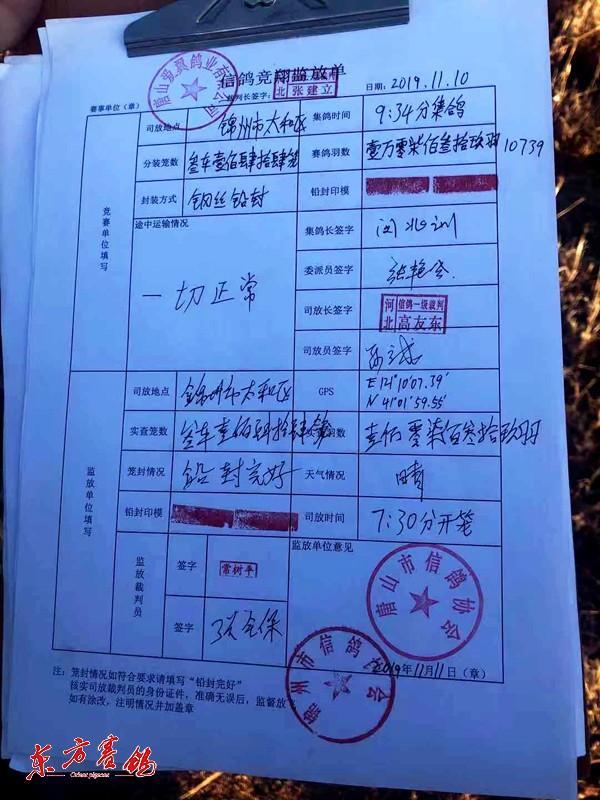 信鸽竞翔监放单
赛事单位（章） 裁判长签字： 北 张建立 日期：2019.11.10
唐山勇翼鸽业有限公司
竞赛单位填写
司放地点 锦州市太和区 集鸽时间 9:34分集鸽
分装笼数 叁车壹佰肆拾肆笼 赛鸽羽数 壹万零柒佰叁拾玖羽 10739
封装方式 钢丝铅封 铅封印模
途中运输情况 集鸽长签字
一切正常
委派员签字
司放长签字 河北 信鸽一级裁判 高友东
司放员签字
监放单位填写
司放地点 锦州市太和区 GPS E 121°10'07.39" N 41°01'59.55"
实查笼数 叁车壹佰肆拾肆笼 羽数 壹万零柒佰叁拾玖羽
笼封情况 铅封完好 天气情况 晴
铅封印模 司放时间 7:30分开笼
监放裁判员 签字 常树平 监放单位意见
签字
唐山市信鸽协会
锦州市信鸽协会
2019年11月11日（章）
注：笼封情况如符合要求请填写“铅封完好”
核实司放裁判员的身份证件，准确无误后，监督放
如有涂改，注明情况并加盖章
东方赛鸽